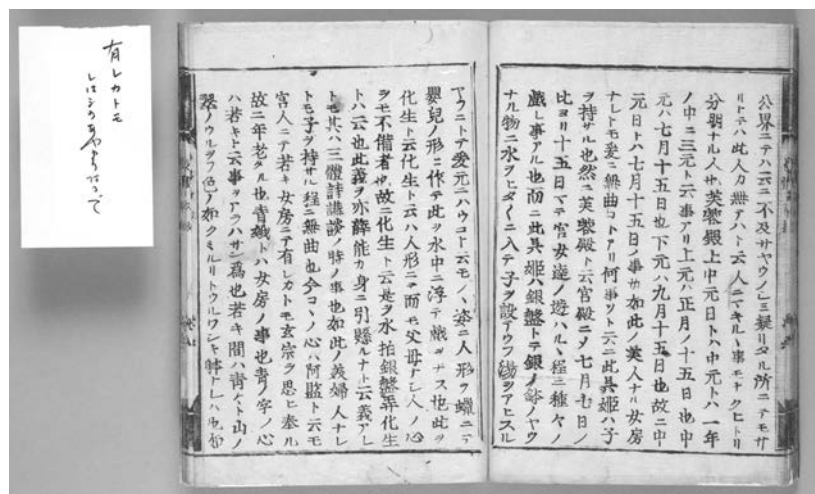 公界ニテハ云ニ不及サヤウノ
リトテハ此人カ無アハト云人ニテキルヽ事モナクヒトリ
分明ナル人サ芙蓉殿上中元日トハ中元トハ一年
ノ中ニ三元ト云事アリ上元ハ正月ノ十五日也中
元ハ七月十五日也下元ハ九月十五日也故ニ中
元日トハ七月十五日ノ事サ如此ノ美人ナル女房
ナレトモ爰ニ無曲コトアリ何事ソト云ニ此呉姫ハ子
ヲ持サル也然ニ芙蓉殿ト云官殿ニヲ七月七日ノ
比ヨリ十五日マテ官女達ノ遊ハルヽ程ニ種々ノ
戯レ事アル也而ニ此呉姫ハ銀盤トテ銀ノ鉢ノヤウ
ナル物ニ水ヲヒタ〱ニ入テ子ヲ設アウフ湯ヲアヒスル
アウニトテ愛元ニハウコト云モノヽ姿ニ人形ヲ蠟ニテ
嬰兒ノ形ニ作テ此ヲ水中ニ浮テ戯ヲナス也此ヲ
化生ト云化生ト云ハ人形ニ而モ父母ナシ人ノ心
ヲモ不備者也故ニ化生ト云是ヲ水拍銀盤弄化生
トハ云也此義ヲ亦薛能カ身ニ引懸ルナト云義アレ
トモ其ハ三體詩講談ノ時ノ事也如此ノ義婦人ナレ
トモ子ヲ持サル程ニ無曲也今コヽノ心ハ阿監ト云モ
宮人ニテ若キ女房ニテ有レカトモ玄宗ヲ思ヒ奉ル
故ニ年老タル也青蛾トハ女房ノ事也青ノ字ノ心
ハ若キト云事ヲアラハサン為也若キ間ハ青々ト山ノ
翠ノウルヲフ色ノ如ク
有レカトモ